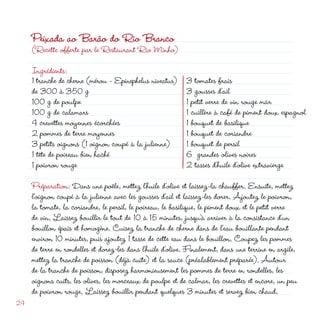 Peixada ao Barão do Rio Branco
(Recette offerte par le Restaurant Rio Minho)
Ingrédients:
1 tranche de cherne (mérou - Epinephelus niveatus)
de 300 à 350 g
100 g de poulpe
100 g de calamars
4 crevettes moyennes écorchées
2 pommes de terre moyennes
3 petits oignons (1 oignon coupé à la julienne)
1 tête de poireau bon, haché
1 poivron rouge
3 tomates frais
3 gousses d'ail
1 petit verre de vin rouge mûr
1 cuillère à café de piment doux espagnol
1 bouquet de basilique
1 bouquet de coriandre
1 bouquet de persil
6 grandes olives noires
2 tasses d'huile d'olive extravierge
Préparation: Dans une poêle, mettez l'huile d'olive et laissez-la chauffer. Ensuite, mettez
l'oignon coupé à la julienne avec les gousses d'ail et laissez-les dorer. Ajoutez le poivron,
la tomate, la coriandre, le persil, le poireau, le basilique, le piment doux et le petit verre
de vin. Laissez bouillir le tout de 10 à 15 minutes, jusqu'à arriver à la consistance d'un
bouillon épais et homogène. Cuisez la tranche de cherne dans de l'eau bouillante pendant
environ 10 minutes, puis ajoutez 1 tasse de cette eau dans le bouillon. Coupez les pommes
de terre en rondelles et dorez-les dans l'huile d'olive. Finalement, dans une terrine en argile,
mettez la tranche de poisson (déjà cuite) et la sauce (préalablement préparée). Autour
de la tranche de poisson, disposez harmonieusement les pommes de terre en rondelles, les
oignons cuits, les olives, les morceaux de poulpe et de calmar, les crevettes et encore, un peu
de poivron rouge. Laissez bouillir pendant quelques 3 minutes et servez bien chaud.
24